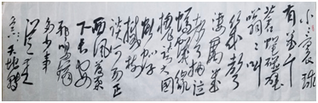 小小寰球
有几个
苍蝇碰壁
嗡嗡叫
几声
凄厉几声
抽泣
蚂蚁缘
槐夸大国
蚍蜉
撼树
谈何易正
西风落叶
下长安
飞鸣镝
多少事
从来
急天地转